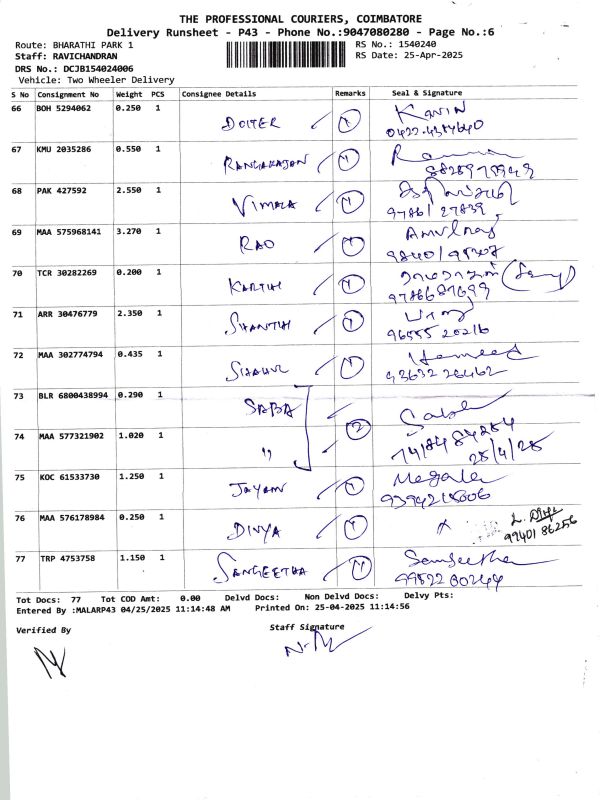 THE PROFESSIONAL COURIERS, COIMBATORE
Delivery Runsheet - P43 - Phone No.:9047080280 - Page No.:6
Route: BHARATHI PARK 1 RS No.: 1540240
Staff: RAVICHANDRAN RS Date: 25-Apr-2025
DRS No.: DCJB154024006
Vehicle: Two Wheeler Delivery
S No Consignment No Weight PCS Consignee Details Remarks Seal & Signature
66 BOH 5294062 0.250 1 DOITER 1 Kavin
67 KMU 2035286 0.550 1 RANGARAJAN 1
68 PAK 427592 2.550 1 VIMALA 1
97861 27839
69 MAA 575968141 3.270 1 RAO 1 Amulraj
70 TCR 30282269 0.200 1 KARTHI 1
71 ARR 30476779 2.350 1 SHANTHI 1
96555 20216
72 MAA 302774794 0.435 1 1 Hameed
93632 26462
73 BLR 6800438994 0.290 1 SABA
74 MAA 577321902 1.020 1 " 2
74184 84284
25/4/25
75 KOC 61533730 1.250 1 Jayam 1 Megala
76 MAA 576178984 0.250 1 DIVYA 1
99401 86256
77 TRP 4753758 1.150 1 SANGEETHA 1 Sangeetha
99522 60244
Tot Docs: 77 Tot COD Amt: 0.00 Delvd Docs: Non Delvd Docs: Delvy Pts:
Entered By :MALARP43 04/25/2025 11:14:48 AM Printed On: 25-04-2025 11:14:56
Verified By Staff Signature